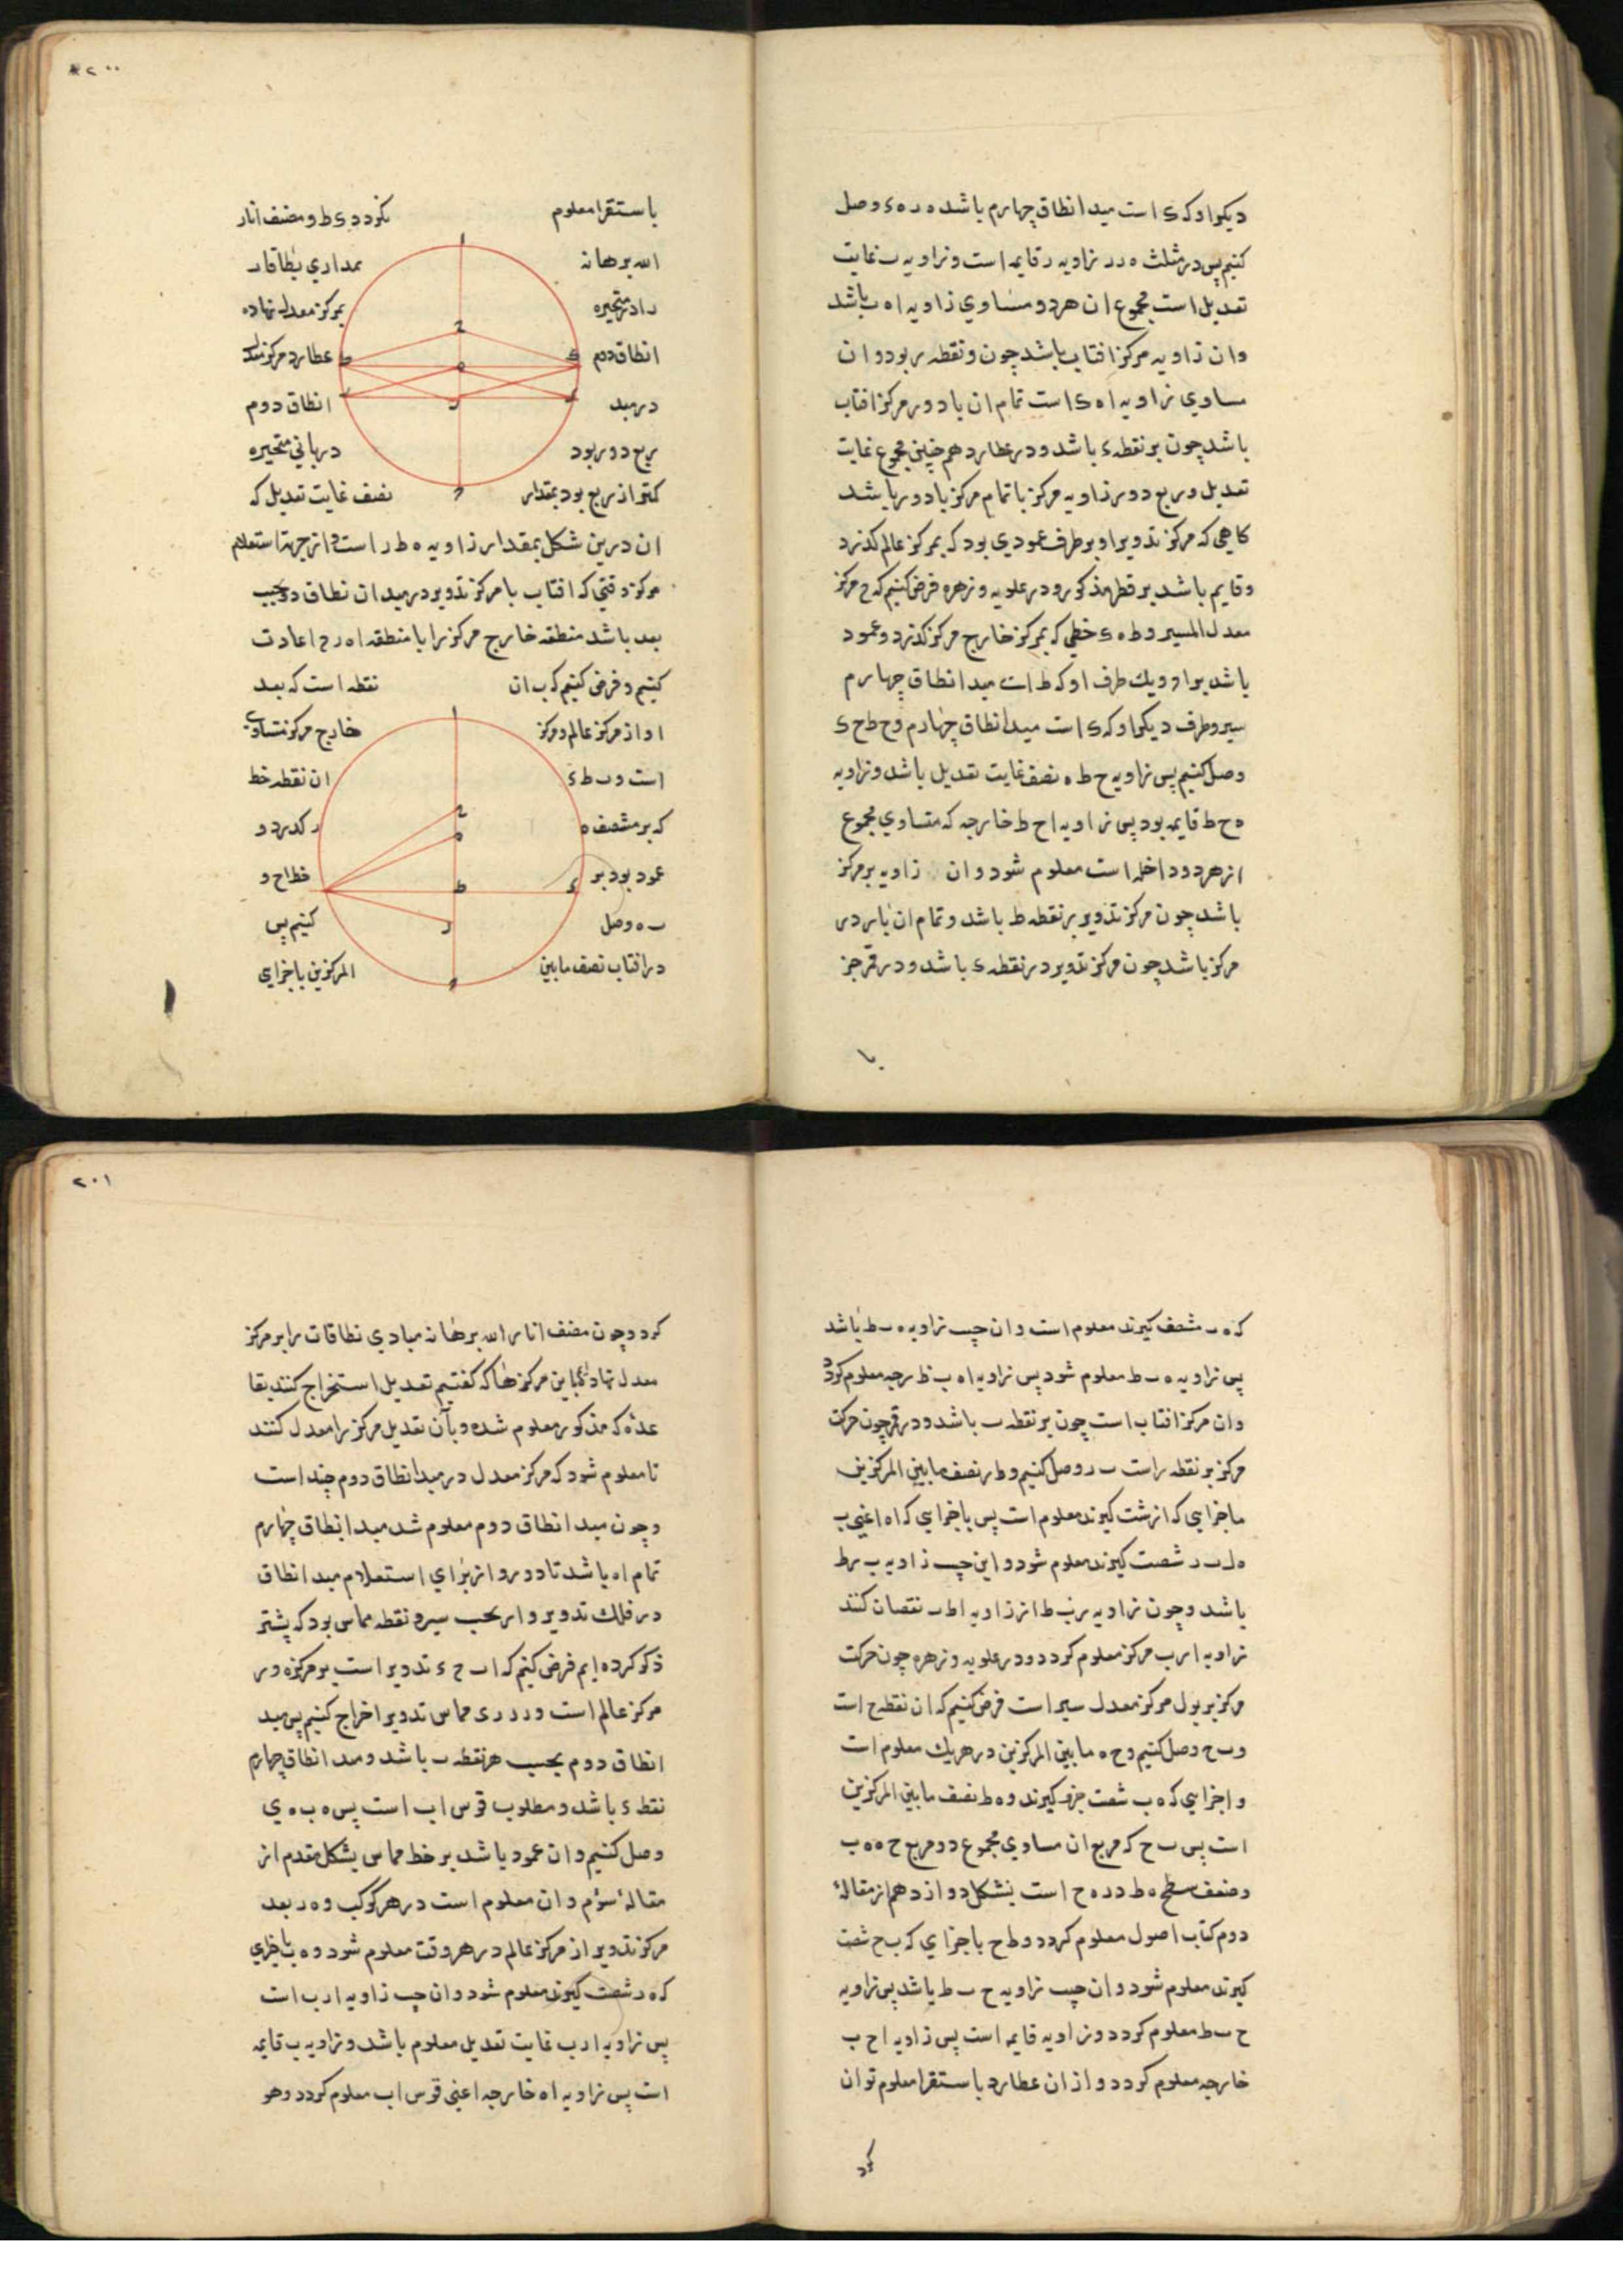 دیکر او که ی است مبدا نطاق چهارم باشد ه ر ه ء وصل
کنیم پس در مثلث ه ر زاویه ر قایمه است و زاویه ب غایت
تعدیل است مجموع ان هر دو مساوی زاویه ا ه ب باشد
وان زاویه مرکز افتاب باشد چون و نقطه ب بود و ان
مساوی زاویه ا ه ی است تمام ان یا دور مرکز افتاب
باشد چون بر نقطه ء باشد و در عطارد هم چنین مجموع غایت
تعدیل و ربع دور زاویه مرکز یا تمام مرکز یا دور باشد
کاهی که مرکز تدویر او بر طرف عمودی بود که بمرکز عالم کذرد
و قایم باشد بر قطر مذکور و در علویه و زهره فرض کنیم که ح مرکز
معدل المسیر و ط ه ی خطی که بمرکز خارج مرکز کذرد و عمود
باشد بر ا و و یك طرف او که ط است مبدا نطاق چهارم
سیر و طرف دیکر او که ی است مبدا نطاق چهارم و ح ط ح ی
وصل کنیم پس زاویه ح ط ه نصف غایت تعدیل باشد و زاویه
ه ح ط قایمه بود پس زاویه ا ح ط خارجه که متساوی مجموع
از هر دو داخله است معلوم شود و ان زاویه بر مرکز
باشد چون مرکز تدویر بر نقطه ط باشد و تمام ان تا بر دور
مرکز باشد چون مرکز تدویر در نقطه ء باشد و در قمر جز
با
۲۰۰
باستقرا معلوم کردد ی ط و مصنف انار
الله برهانه مداری نطاقات
را در متحیره بمرکز معدل نهاده
انطاق دوم عطارد مرکز
در مبد انطاق دوم
ربع دور بود در باقی متحیره
کمتر از ربع بود بمقدار نصف غایت تعدیل که
ان درین شکل بمقدار زاویه ه ط ر است و از جهت استعلام
مرکز وقتی که افتاب یا مرکز تدویر در مبدا ن نطاق دوم بحسب
بعد باشد منطقه خارج مرکز را با منطقه ا ه ر ح اعادت
کنیم و فرض کنیم که ب ان نقطه است که بعد
او از مرکز عالم و مرکز خارج مرکز متساوی
است و ب ط ء ان نقطه خط
که بر منتصف ه ر کدرد و
عمود بود بر خط ا ح و
ب ه وصل کنیم پس
در افتاب نصف مابین المرکزین باجزای
که ه ب شصت کیرند معلوم است و ان جیب زاویه ه ب ط باشد
پس زاویه ه ب ط معلوم شود پس زاویه ا ه ب خارجه معلوم کردد
و ان مرکز افتاب است چون بر نقطه ب باشد و در قمر چون حرکت
مرکز بر نقطه ر است ب ر وصل کنیم و ط ر نصف مابین المرکزین
باجزایی که ا ز شصت کیرند معلوم است پس باجزایی که ا ه اعنی ب
ه ل ب ر شصت کیرند معلوم شود و این جیب زاویه ب ر ط
باشد و چون زاویه ر ب ط از زاویه ا ط ب نقصان کنند
زاویه ا ر ب مرکز معلوم کردد و در علویه و زهره چون حرکت
مرکز بر حول مرکز معدل سیر است فرض کنیم که ان نقطه ح است
و ب ح وصل کنیم و ح ه مابین المرکزین در هر یك معلوم است
و اجزایی که ه ب شصت جزء کیرند و ه ط نصف مابین المرکزین
است پس ب ح که مربع ان مساوی مجموع دو مربع ح ه ه ب
و ضعف سطح ه ط در ه ح است بشکل دوازدهم از مقاله
دوم کتاب اصول معلوم کردد و ط ح باجزایی که ب ح شصت
کیرند معلوم شود و ان جیب زاویه ح ب ط باشد پس زاویه
ح ب ط معلوم کردد و زاویه قایمه است پس زاویه ا ح ب
خارجه معلوم کردد و از ان عطارد باستقرا معلوم توان
کرد
۲۰۱
کرد و چون مصنف انار الله برهانه مبادی نطاقات را بر مرکز
معدل نهاد باین مرکزها که کفتیم تعدیل استخراج کنند بقا
عده که مذکور معلوم شده و بآن تعدیل مرکز را معدل کنند
تا معلوم شود که مرکز معدل در مبدا نطاق دوم چند است
و چون مبدا نطاق دوم معلوم شد مبدا نطاق چهارم
تمام اه باشد تا دور و از برای استعلام مبدا نطاق
در فلك تدویر و ا بحسب سیر و نقطه مماس بود که پیشتر
ذکر کرده ایم فرض کنیم که ا ب ح ء تدویر است بر مرکز ه و ر
مرکز عالم است و ر ب ر ی مماس تدویر اخراج کنیم پس مبد
انطاق دوم بحسب نقطه ب باشد و مبد انطاق چهارم
نقطه ء باشد و مطلوب قوس اب است پس ه ب ه ی
وصل کنیم و ان عمود باشد بر خط مماس بشکل مقدم از
مقالهٔ سوم و ان معلوم است در هر کوکب و ه ر بعد
مرکز تدویر از مرکز عالم در هر وقت معلوم شود و ه ب باجزای
که ه ر شصت کیرند معلوم شود و ان جیب زاویه ا ر ب است
پس زاویه ا ر ب غایت تعدیل معلوم باشد و زاویه ب قایمه
است پس زاویه ا ه خارجه اعنی قوس اب معلوم کردد و هو